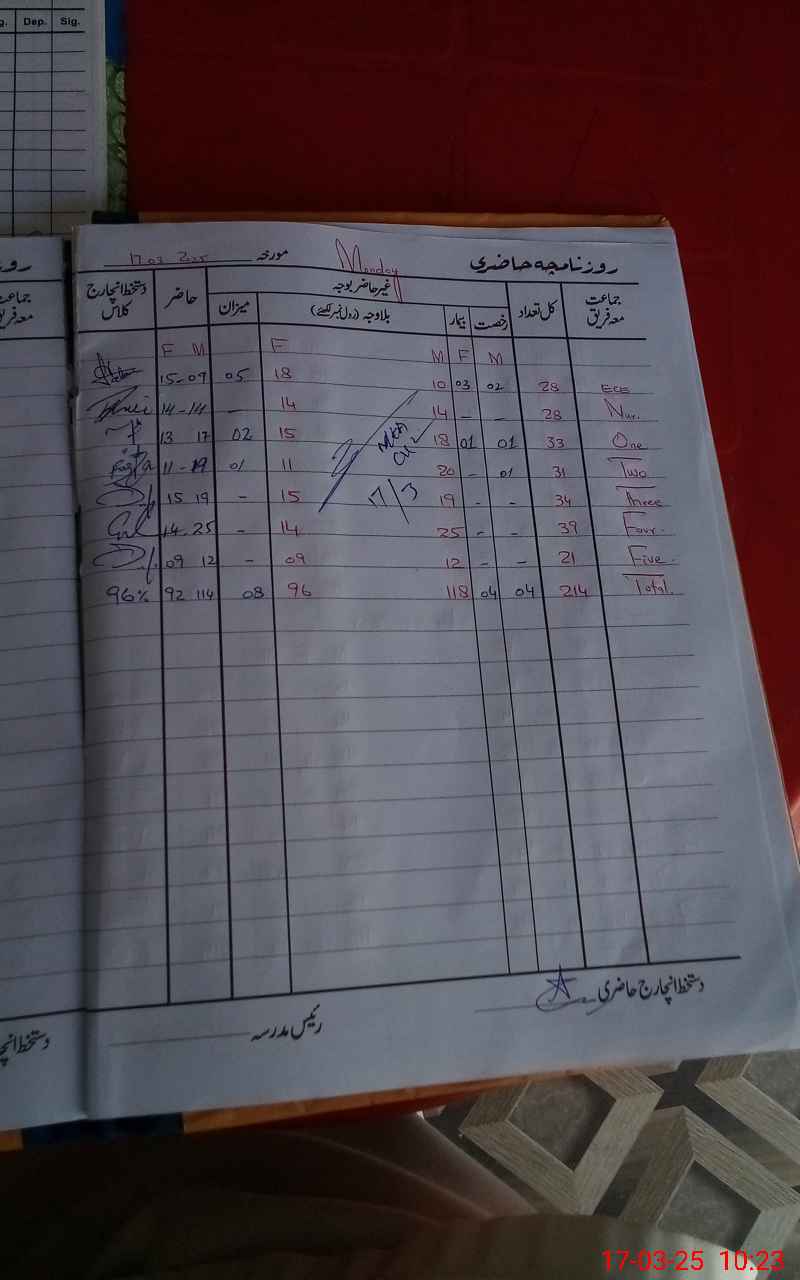 g. Dep. Sig.
روزنامچہ حاضری Monday مورخہ 17.03.2025
جماعت معہ فریق کل تعداد غیر حاضر بوجہ میزان حاضر دستخط انچارج کلاس
رخصت بیمار بلاوجہ (رول نمبر لکھئے)
M F M F M F
ECE 28 02 03 10 18 05 15-07
Nur. 28 - - 14 14 - 14-14
One 33 01 01 18 15 02 13 17
Two 31 01 - 20 11 01 11-19
Three 34 - - 19 15 - 15 19
Four. 39 - - 25 14 - 14.25
Five. 21 - - 12 09 - 09 12
Total. 214 04 04 118 96 08 92 114 96%
17/3
دستخط انچارج حاضری
رئیس مدرسہ
روز
جماعت
معہ فریق
دستخط انچا
17-03-25 10:23